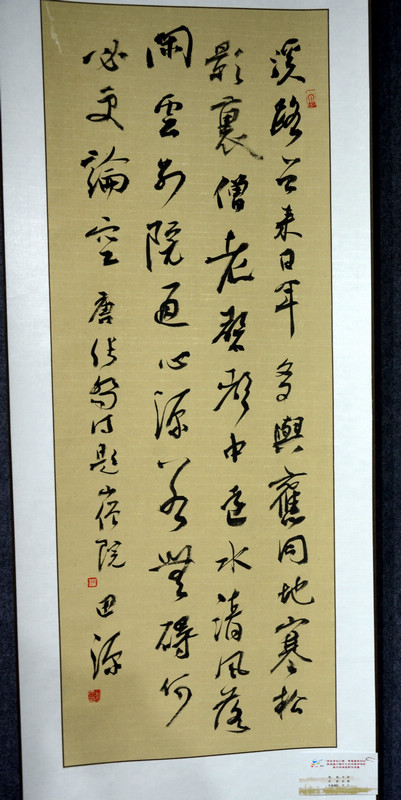 溪路曾来日年多與舊同地寒松
影裏僧老磬聲中遠水清風落
閑雲別院通心源若無碍何
必更論空 唐張喬詩題山僧院 田源